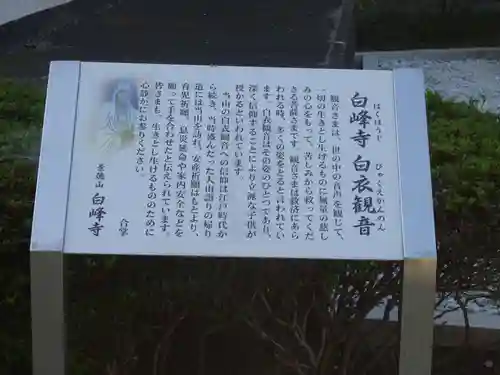 はくほうじ　びゃくえかんのん
白峰寺 白衣観音
観音さまは、世の中の音声を観じて、
一切の生きとし生けるものに無量の慈し
みの心をもって、苦しみから救ってくだ
さる菩薩さまです。観音さまは救済にあら
われる時、多くの姿をとると言われてい
ます。白衣観音はその姿のひとつであり、
深く信仰することにより立派な子供が
授かるといわれています。
当山の白衣観音への信仰は江戸時代か
ら続き、当時盛んだった大山詣りの帰り
道には当山を訪れ、安産祈願はもとより、
育児祈願、息災延命や家内安全などを
願って手を合わせたと伝えられています。
皆さまも、生きとし生けるもののために
心静かにお参りください。
合掌
白峰寺